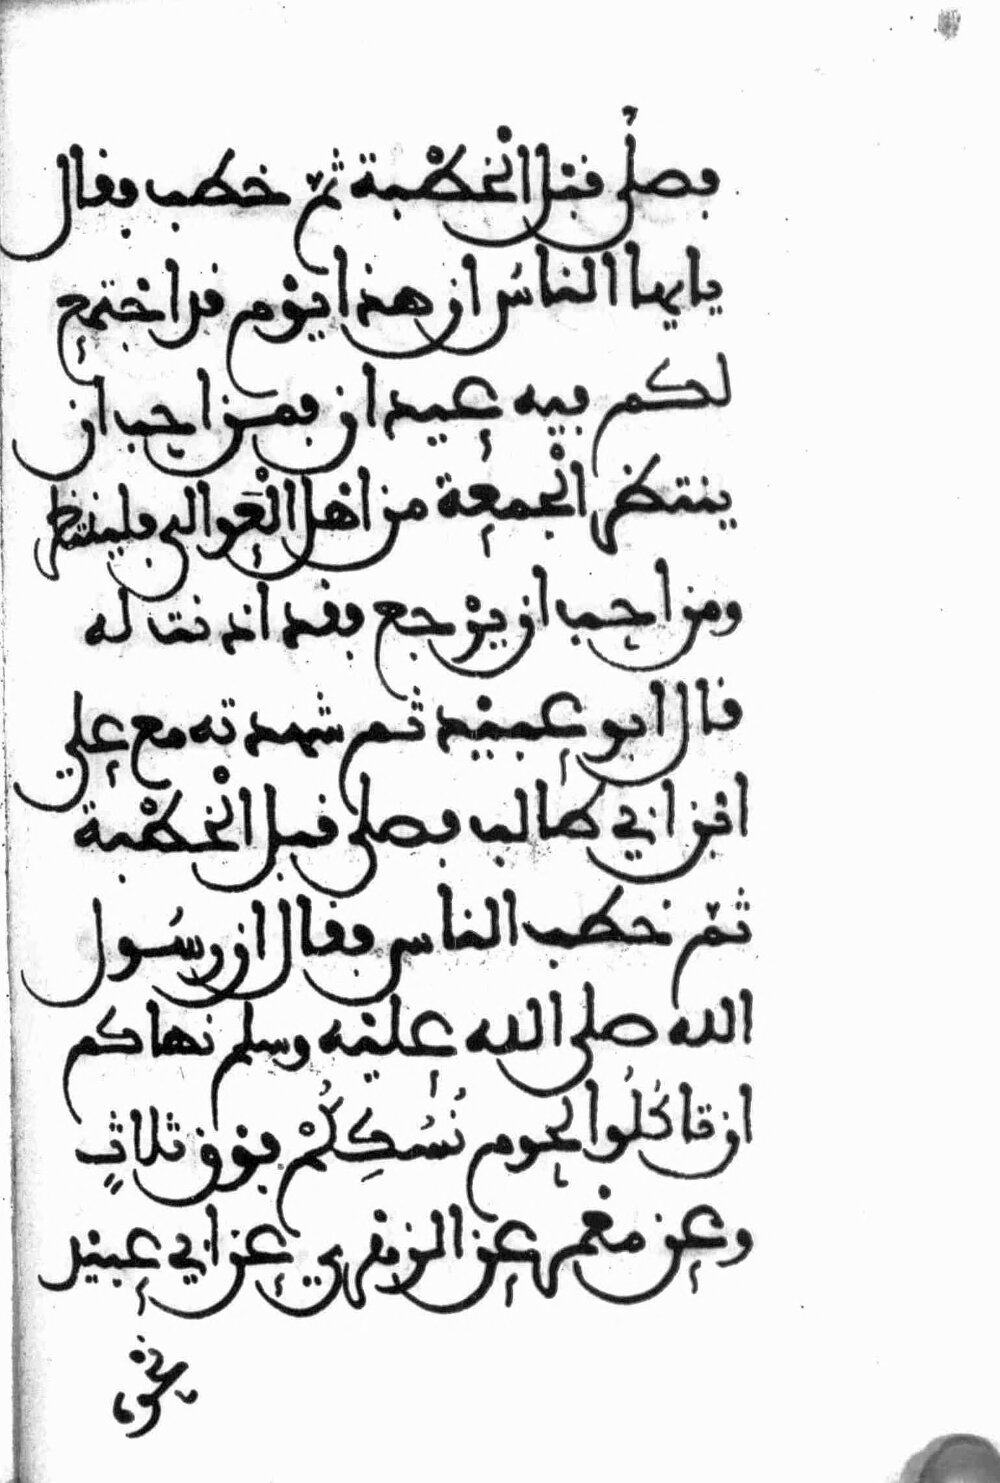 فصلى قبل الخطبة ثم خطب فقال
يايها الناس ان هذا يوم قد اجتمع
لكم فيه عيدان فمن احب ان
ينتظر الجمعة من اهل العوالي فلينتظر
ومن احب ان يرجع فقد اذنت له
قال ابو عبيد ثم شهدته مع علي
ابن ابي طالب فصلى قبل الخطبة
ثم خطب الناس فقال ان رسول
الله صلى الله عليه وسلم نهاكم
ان تاكلوا لحوم نُسُكِكُمْ فوق ثلاثٍ
وعن معمر عن الزهري عن ابي عبيد
نحوه